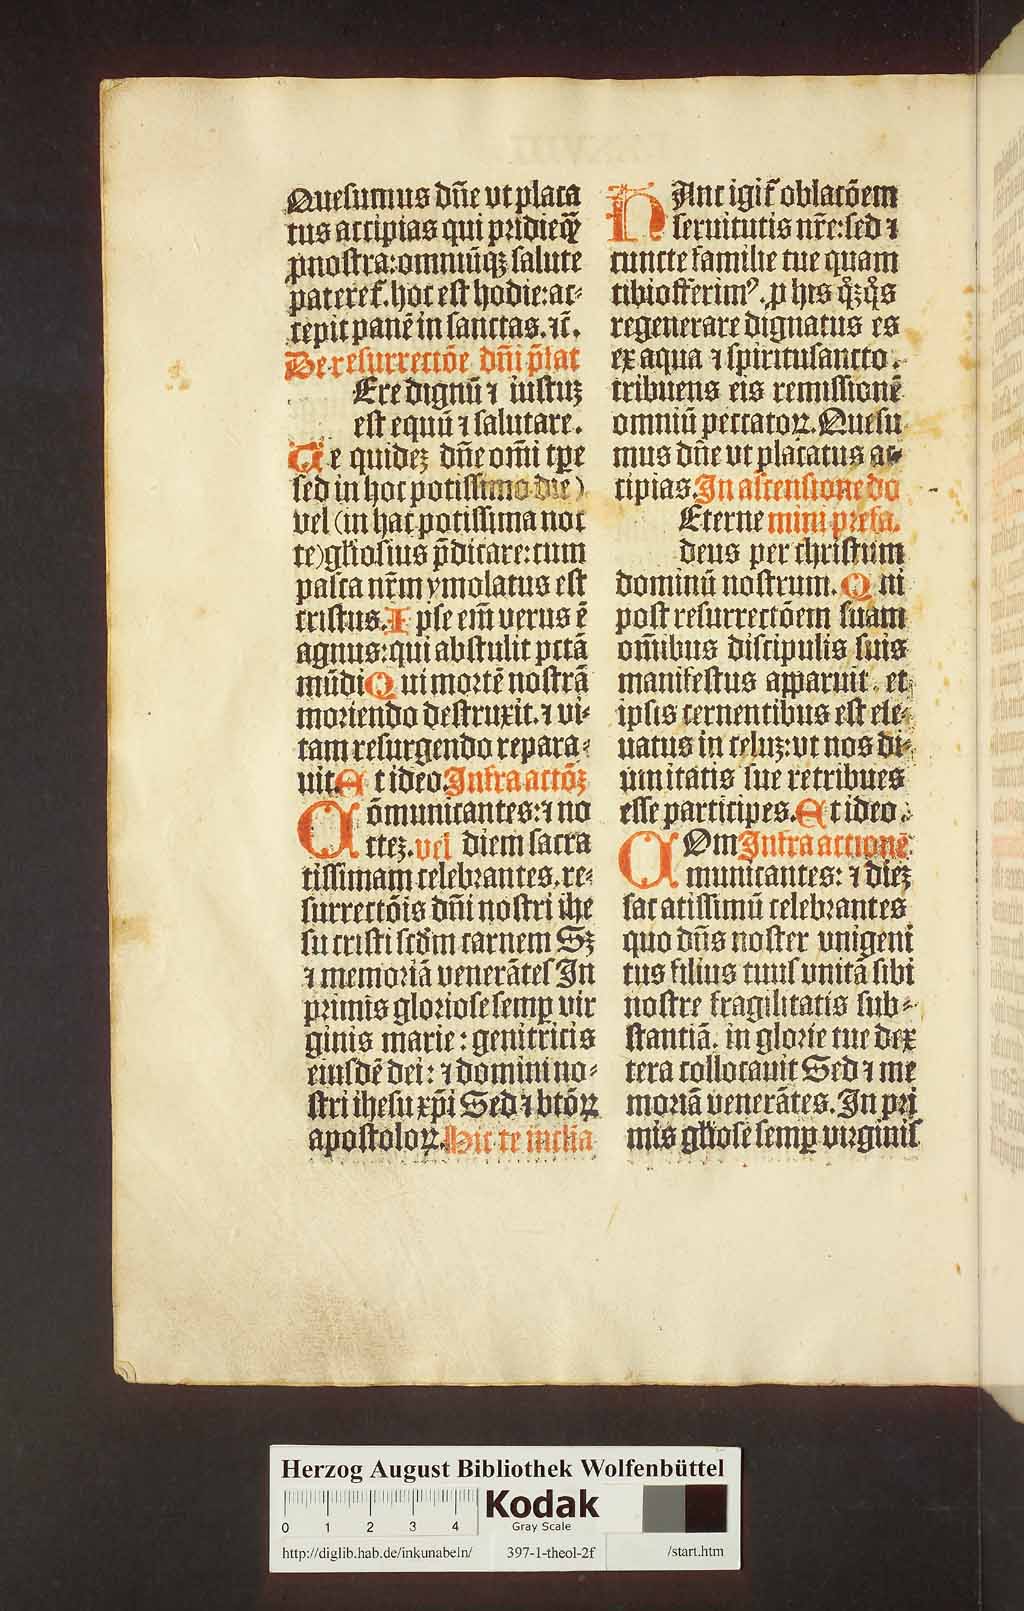 Quesumus dn̄e vt placa
tus accipias qui pridieqȝ
ꝓ nostra: omniūqȝ salute
pateret᷑. hoc est hodie: ac⸗
cepit panē in sanctas. ⁊c̄.
De resurrectōe dn̄i p̄fat
Ere dignū ⁊ iustuȝ
est equū ⁊ salutare.
Te quideȝ dn̄e om̄i tp̄e
sed in hoc potissimo die)
vel (in hac potissima noc
te) gl̄iosius p̄dicare: cum
pasca nr̄m ymolatus est
cristus. Ipse em̄ verus ē
agnus: qui abstulit pctā
mūdi Qui mortē nostrā
moriendo destruxit. ⁊ vi⸗
tam resurgendo repara⸗
uit. Et ideo. Infra actōȝ
Cōmunicantes: ⁊ no
cteȝ. vel diem sacra
tissimam celebrantes. re⸗
surrectōis dn̄i nostri ihe
su cristi scdm̄ carnem Sȝ
⁊ memoriā venerātes In
primis gloriose semꝑ vir
ginis marie: genitricis
eiusdē dei: ⁊ domini no⸗
stri ihesu xp̄i Sed ⁊ btōꝝ
apostoloꝝ. Hic te inclia
HAnc igit᷑ oblatōem
seruitutis nr̄e: sed ⁊
cuncte familie tue quam
tibi offerimꝰ. ꝓ his qͦȝ qͦs
regenerare dignatus es
ex aqua ⁊ spiritusancto.
tribuens eis remissionē
omniū peccatoꝝ. Quesu
mus dn̄e vt placatus ac⸗
cipias. In ascensione do
Eterne mini prefa.
deus per christum
dominū nostrum. Qui
post resurrectōem suam
om̄ibus discipulis suis
manifestus apparuit. et
ipsis cernentibus est ele⸗
uatus in celuȝ: vt nos di⸗
uinitatis sue retribues
esse participes. Et ideo.
COm Infra actionē
municantes: ⁊ dieȝ
sacratissimū celebrantes
quo dn̄s noster vnigeni
tus filius tuus vnitā sibi
nostre fragilitatis sub⸗
stantiā. in glorie tue dex
tera collocauit Sed ⁊ me
moriā venerātes. In pri
mis gl̄iose semꝑ virginis
Herzog August Bibliothek Wolfenbüttel
0 1 2 3 4
Kodak
Gray Scale
http://diglib.hab.de/inkunabeln/ 397-1-theol-2f /start.htm